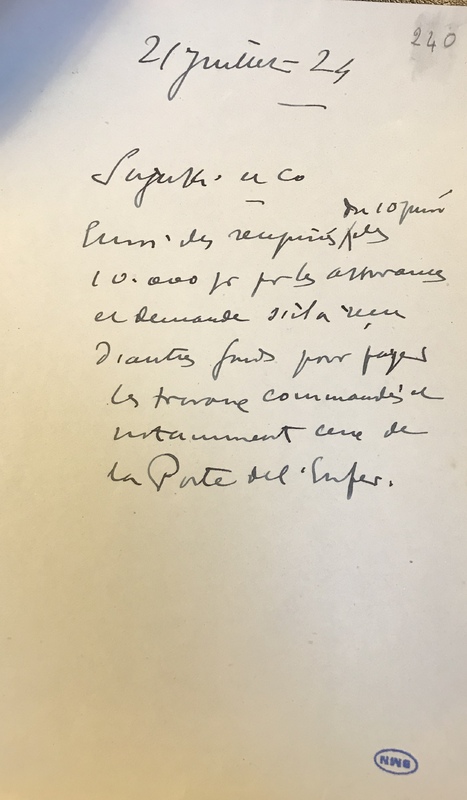 240
21 juillet 24
Suzuki et Co
du 10 juin
Envoi des récépissés des
10.000 fr pr les assurances
et demande s'il a reçu
d'autres fonds pour payer
les travaux commandés et
notamment ceux de
la Porte de l'Enfer.
BMN